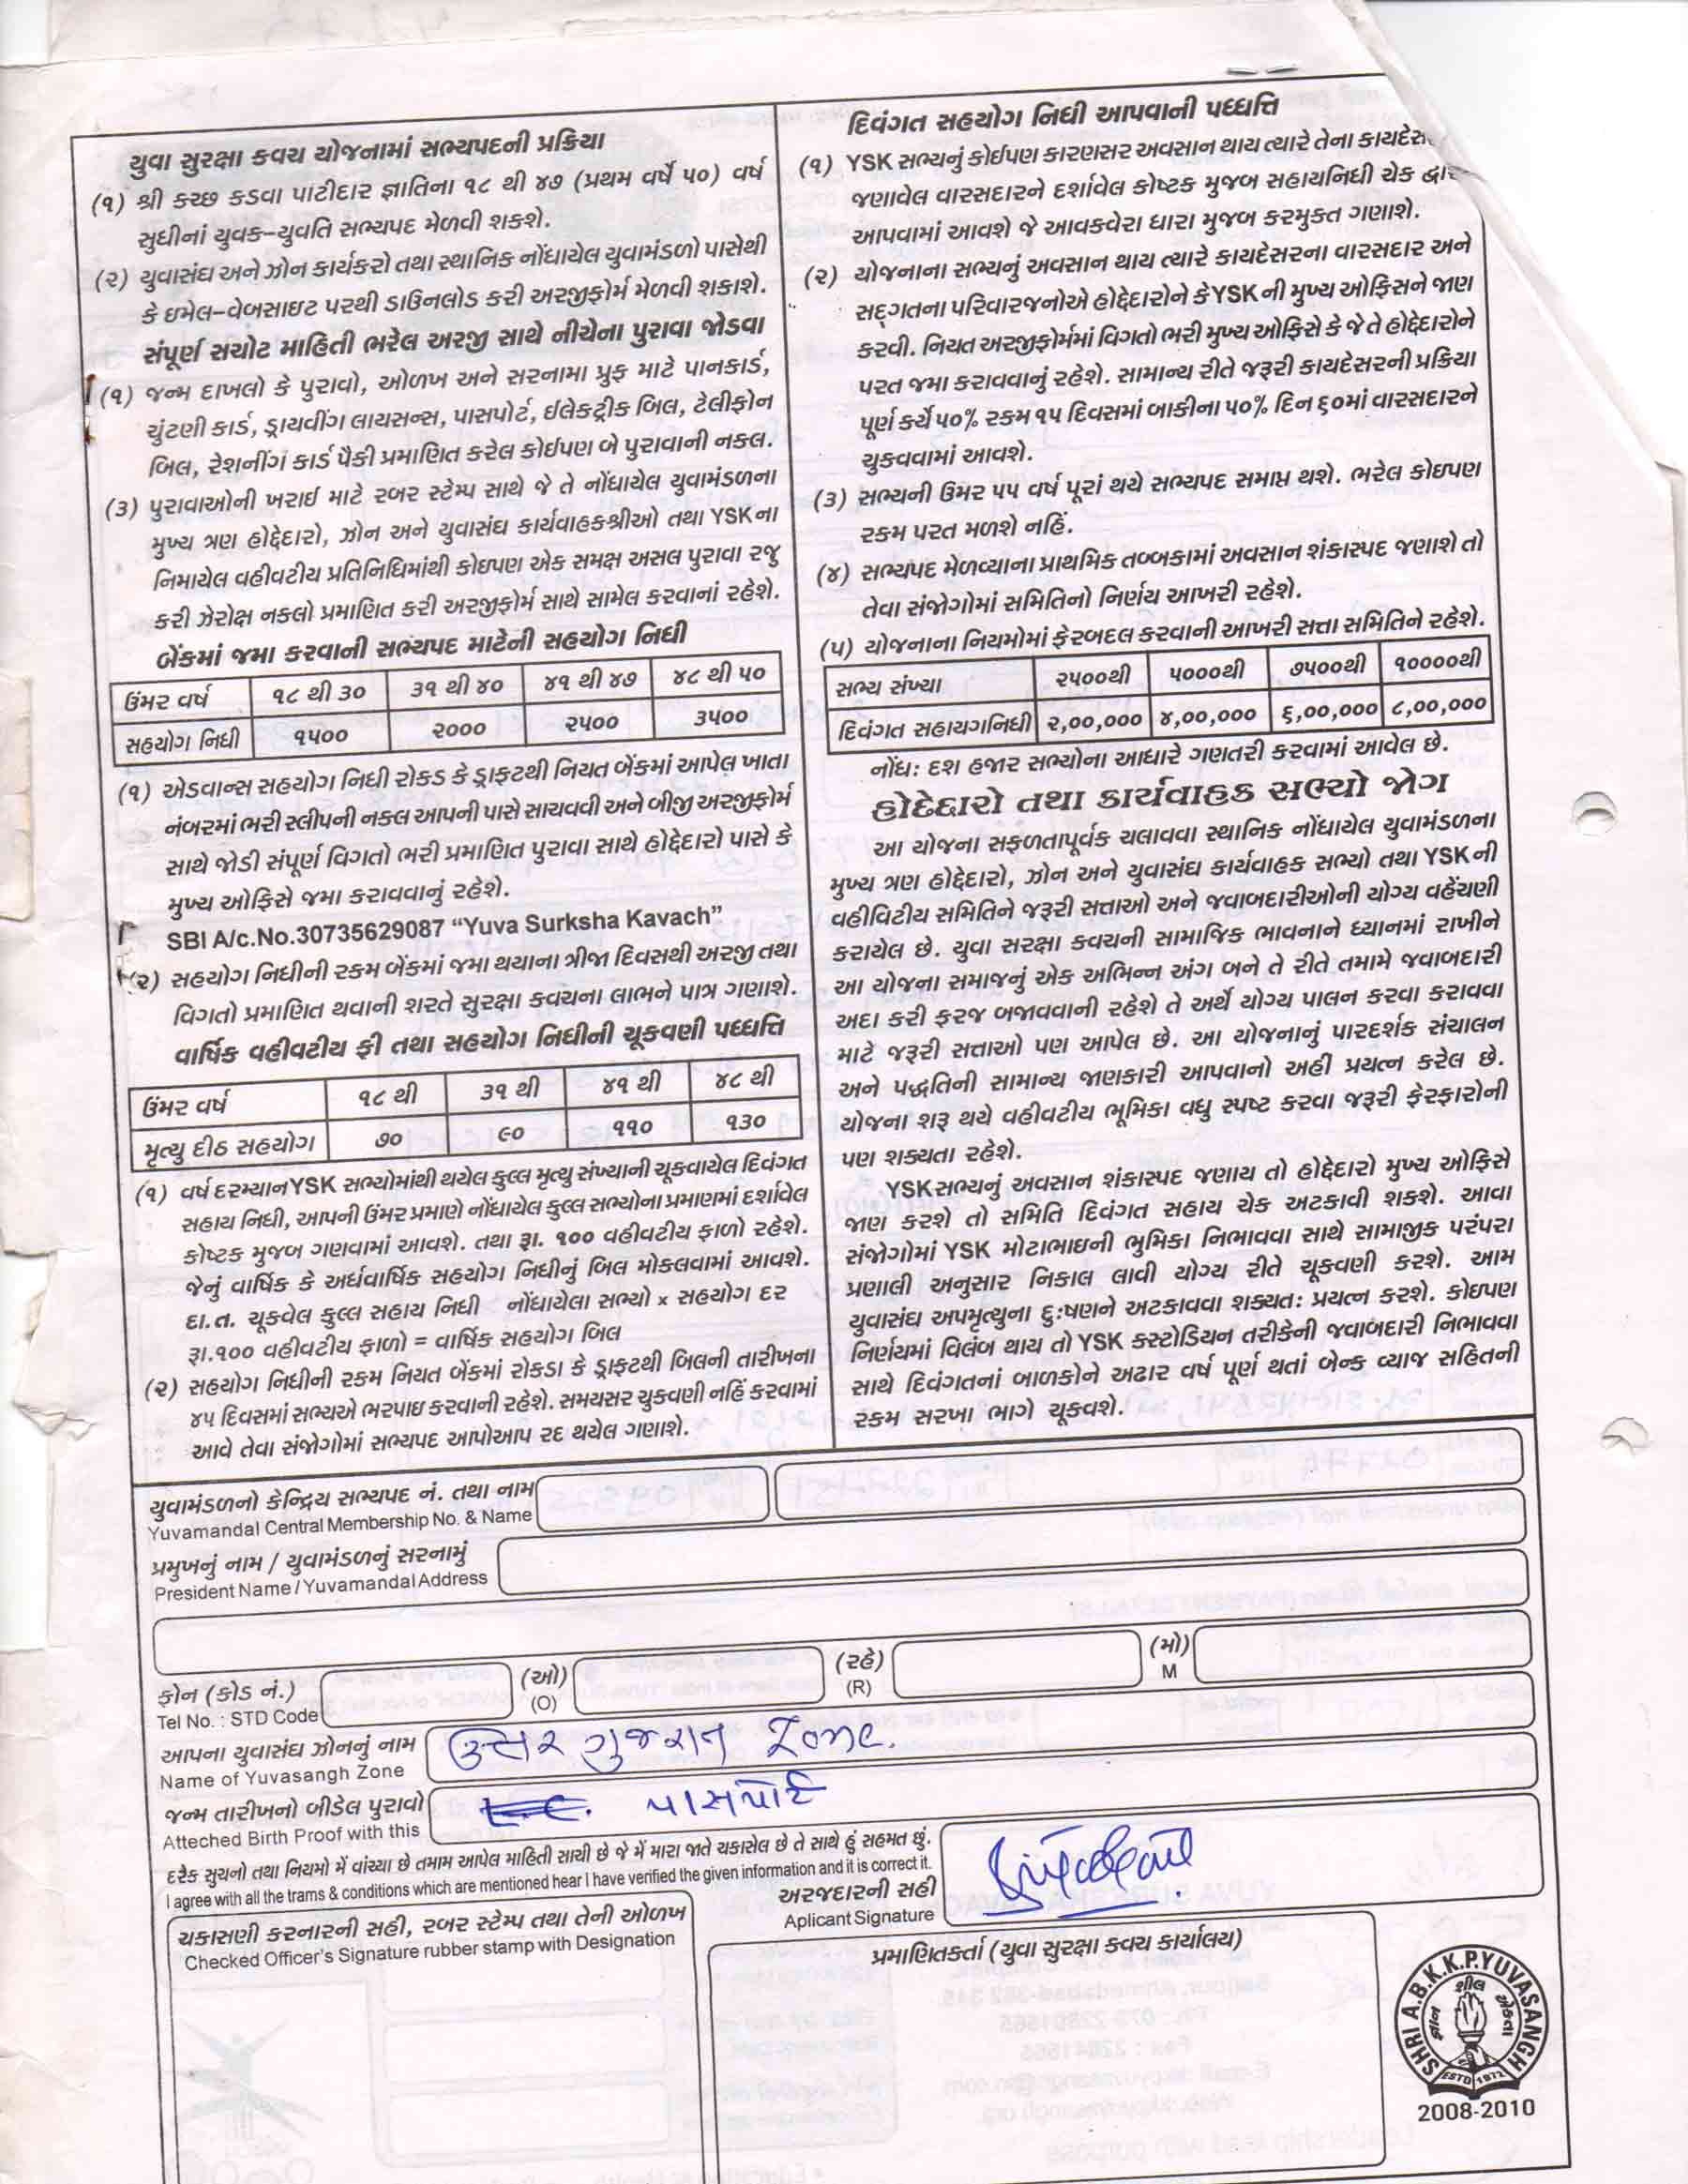 યુવા સુરક્ષા કવચ યોજનામાં સભ્યપદની પ્રક્રિયા
(૧) શ્રી કચ્છ કડવા પાટીદાર જ્ઞાતિના ૧૮ થી ૪૭ (પ્રથમ વર્ષે ૫૦) વર્ષ
સુધીનાં યુવક–યુવતિ સભ્યપદ મેળવી શકશે.
(૨) યુવાસંઘ અને ઝોન કાર્યકરો તથા સ્થાનિક નોંધાયેલ યુવામંડળો પાસેથી
કે ઇમેલ–વેબસાઇટ પરથી ડાઉનલોડ કરી અરજીફોર્મ મેળવી શકાશે.
સંપૂર્ણ સચોટ માહિતી ભરેલ અરજી સાથે નીચેના પુરાવા જોડવા
(૧) જન્મ દાખલો કે પુરાવો, ઓળખ અને સરનામા પ્રુફ માટે પાનકાર્ડ,
ચુંટણી કાર્ડ, ડ્રાયવીંગ લાયસન્સ, પાસપોર્ટ, ઈલેકટ્રીક બિલ, ટેલીફોન
બિલ, રેશનીંગ કાર્ડ પૈકી પ્રમાણિત કરેલ કોઈપણ બે પુરાવાની નકલ.
(૩) પુરાવાઓની ખરાઈ માટે રબર સ્ટેમ્પ સાથે જે તે નોંધાયેલ યુવામંડળના
મુખ્ય ત્રણ હોદ્દેદારો, ઝોન અને યુવાસંઘ કાર્યવાહકશ્રીઓ તથા YSKના
નિમાયેલ વહીવટીય પ્રતિનિધિમાંથી કોઇપણ એક સમક્ષ અસલ પુરાવા રજુ
કરી ઝેરોક્ષ નકલો પ્રમાણિત કરી અરજીફોર્મ સાથે સામેલ કરવાનાં રહેશે.
બેંકમાં જમા કરવાની સભ્યપદ માટેની સહયોગ નિધી
ઉંમર વર્ષ ૧૮ થી ૩૦ ૩૧ થી ૪૦ ૪૧ થી ૪૭ ૪૮ થી ૫૦
સહયોગ નિધી ૧૫૦૦ ૨૦૦૦ ૨૫૦૦ ૩૫૦૦
(૧) એડવાન્સ સહયોગ નિધી રોકડ કે ડ્રાફટથી નિયત બેંકમાં આપેલ ખાતા
નંબરમાં ભરી સ્લીપની નકલ આપની પાસે સાચવવી અને બીજી અરજીફોર્મ
સાથે જોડી સંપૂર્ણ વિગતો ભરી પ્રમાણિત પુરાવા સાથે હોદ્દેદારો પાસે કે
મુખ્ય ઓફિસે જમા કરાવવાનું રહેશે.
SBI A/c.No.30735629087 “Yuva Surksha Kavach”
(૨) સહયોગ નિધીની રકમ બેંકમાં જમા થયાના ત્રીજા દિવસથી અરજી તથા
વિગતો પ્રમાણિત થવાની શરતે સુરક્ષા કવચના લાભને પાત્ર ગણાશે.
વાર્ષિક વહીવટીય ફી તથા સહયોગ નિધીની ચૂકવણી પધ્ધતિ
ઉંમર વર્ષ ૧૮ થી ૩૧ થી ૪૧ થી ૪૮ થી
મૃત્યુ દીઠ સહયોગ ૭૦ ૯૦ ૧૧૦ ૧૩૦
(૧) વર્ષ દરમ્યાન YSK સભ્યોમાંથી થયેલ કુલ્લ મૃત્યુ સંખ્યાની ચૂકવાયેલ દિવંગત
સહાય નિધી, આપની ઉંમર પ્રમાણે નોંધાયેલ કુલ્લ સભ્યોના પ્રમાણમાં દર્શાવેલ
કોષ્ટક મુજબ ગણવામાં આવશે. તથા રૂા. ૧૦૦ વહીવટીય ફાળો રહેશે.
જેનું વાર્ષિક કે અર્ધવાર્ષિક સહયોગ નિધીનું બિલ મોકલવામાં આવશે.
દા.ત. ચૂકવેલ કુલ્લ સહાય નિધી નોંધાયેલા સભ્યો x સહયોગ દર
રૂા.૧૦૦ વહીવટીય ફાળો = વાર્ષિક સહયોગ બિલ
(૨) સહયોગ નિધીની રકમ નિયત બેંકમાં રોકડા કે ડ્રાફટથી બિલની તારીખના
૪૫ દિવસમાં સભ્યએ ભરપાઇ કરવાની રહેશે. સમયસર ચુકવણી નહિં કરવામાં
આવે તેવા સંજોગોમાં સભ્યપદ આપોઆપ રદ થયેલ ગણાશે.
દિવંગત સહયોગ નિધી આપવાની પધ્ધતિ
(૧) YSK સભ્યનું કોઈપણ કારણસર અવસાન થાય ત્યારે તેના
જણાવેલ વારસદારને દર્શાવેલ કોષ્ટક મુજબ સહાયનિધી ચેક
આપવામાં આવશે જે આવકવેરા ધારા મુજબ કરમુક્ત ગણાશે.
(૨) યોજનાના સભ્યનું અવસાન થાય ત્યારે કાયદેસરના વારસદાર અને
સદ્‌ગતના પરિવારજનોએ હોદ્દેદારોને કે YSK ની મુખ્ય ઓફિસને જાણ
કરવી. નિયત અરજીફોર્મમાં વિગતો ભરી મુખ્ય ઓફિસે કે જે તે હોદ્દેદારોને
પરત જમા કરાવવાનું રહેશે. સામાન્ય રીતે જરૂરી કાયદેસરની પ્રક્રિયા
પૂર્ણ કર્યે ૫૦% રકમ ૧૫ દિવસમાં બાકીના ૫૦% દિન ૬૦માં વારસદારને
ચુકવવામાં આવશે.
(૩) સભ્યની ઉંમર ૫૫ વર્ષ પૂરાં થયે સભ્યપદ સમાપ્ત થશે. ભરેલ કોઇપણ
રકમ પરત મળશે નહિં.
(૪) સભ્યપદ મેળવ્યાના પ્રાથમિક તબ્બકામાં અવસાન શંકાસ્પદ જણાશે તો
તેવા સંજોગોમાં સમિતિનો નિર્ણય આખરી રહેશે.
(૫) યોજનાના નિયમોમાં ફેરબદલ કરવાની આખરી સત્તા સમિતિને રહેશે.
સભ્ય સંખ્યા ૨૫૦૦થી ૫૦૦૦થી ૭૫૦૦થી ૧૦૦૦૦થી
દિવંગત સહાયગનિધી ૨,૦૦,૦૦૦ ૪,૦૦,૦૦૦ ૬,૦૦,૦૦૦ ૮,૦૦,૦૦૦
નોંધ: દશ હજાર સભ્યોના આધારે ગણતરી કરવામાં આવેલ છે.
હોદ્દેદારો તથા કાર્યવાહક સભ્યો જોગ
આ યોજના સફળતાપૂર્વક ચલાવવા સ્થાનિક નોંધાયેલ યુવામંડળના
મુખ્ય ત્રણ હોદ્દેદારો, ઝોન અને યુવાસંઘ કાર્યવાહક સભ્યો તથા YSKની
વહીવિટીય સમિતિને જરૂરી સત્તાઓ અને જવાબદારીઓની યોગ્ય વહેંચણી
કરાયેલ છે. યુવા સરક્ષા કવચની સામાજિક ભાવનાને ધ્યાનમાં રાખીને
આ યોજના સમાજનું એક અભિન્ન અંગ બને તે રીતે તમામે જવાબદારી
અદા કરી ફરજ બજાવવાની રહેશે તે અર્થે યોગ્ય પાલન કરવા કરાવવા
માટે જરૂરી સત્તાઓ પણ આપેલ છે. આ યોજનાનું પારદર્શક સંચાલન
અને પદ્ધતિની સામાન્ય જાણકારી આપવાનો અહીં પ્રયત્ન કરેલ છે.
યોજના શરૂ થયે વહીવટીય ભૂમિકા વધુ સ્પષ્ટ કરવા જરૂરી ફેરફારોની
પણ શક્યતા રહેશે.
YSKસભ્યનું અવસાન શંકાસ્પદ જણાય તો હોદ્દેદારો મુખ્ય ઓફિસે
જાણ કરશે તો સમિતિ દિવંગત સહાય ચેક અટકાવી શકશે. આવા
સંજોગોમાં YSK મોટાભાઇની ભુમિકા નિભાવવા સાથે સામાજીક પરંપરા
પ્રણાલી અનુસાર નિકાલ લાવી યોગ્ય રીતે ચૂકવણી કરશે. આમ
યુવાસંઘ અપમૃત્યુના દુ:ષણને અટકાવવા શક્યત: પ્રયત્ન કરશે. કોઇપણ
નિર્ણયમાં વિલંબ થાય તો YSK કસ્ટોડિયન તરીકેની જવાબદારી નિભાવવા
સાથે દિવંગતનાં બાળકોને અઢાર વર્ષ પૂર્ણ થતાં બેન્ક વ્યાજ સહિતની
રકમ સરખા ભાગે ચૂકવશે.
યુવામંડળનો કેન્દ્રિય સભ્યપદ નં. તથા નામ
Yuvamandal Central Membership No. & Name
પ્રમુખનું નામ / યુવામંડળનું સરનામું
President Name / Yuvamandal Address
ફોન (કોડ નં.) (ઓ) (રહે) (મો)
Tel No. : STD Code (O) (R) M
આપના યુવાસંઘ ઝોનનું નામ ઉત્તર ગુજરાત Zone.
Name of Yuvasangh Zone
જન્મ તારીખનો બીડેલ પુરાવો પાસપોર્ટ
Atteched Birth Proof with this
દરેક સુચનો તથા નિયમો મેં વાંચ્યા છે તમામ આપેલ માહિતી સાચી છે જે મેં મારા જાતે ચકાસેલ છે તે સાથે હું સહમત છું.
I agree with all the trams & conditions which are mentioned hear I have verified the given information and it is correct it.
અરજદારની સહી
Aplicant Signature
ચકાસણી કરનારની સહી, રબર સ્ટેમ્પ તથા તેની ઓળખ
Checked Officer's Signature rubber stamp with Designation
પ્રમાણિતકર્તા (યુવા સુરક્ષા કવચ કાર્યાલય)
SHRI A.B.K.K.P. YUVASANGH
ESTD 1972
2008-2010